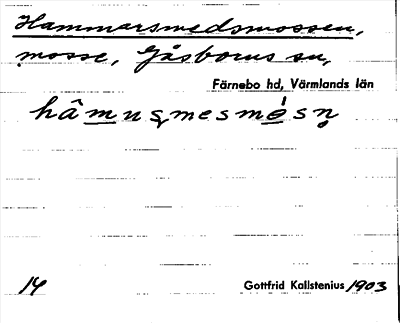 Hammarsmedsmossen,
mosse, Gåsborns sn,
Färnebo hd, Värmlands län
hâmusmesmósn̥
14
Gottfrid Kallstenius 1903